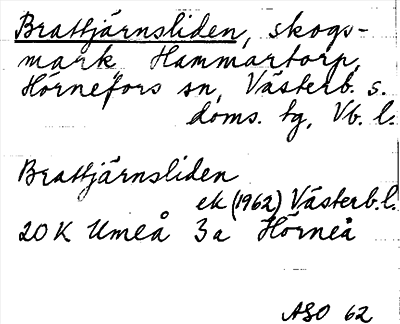 Brattjärnsliden, skogs-
mark Hammartorp,
Hörnefors sn, Västerb. s.
doms. tg, Vb. l.
Brattjärnsliden
ek (1962) Västerb. l.
20K Umeå 3a Hörneå
ASO 62